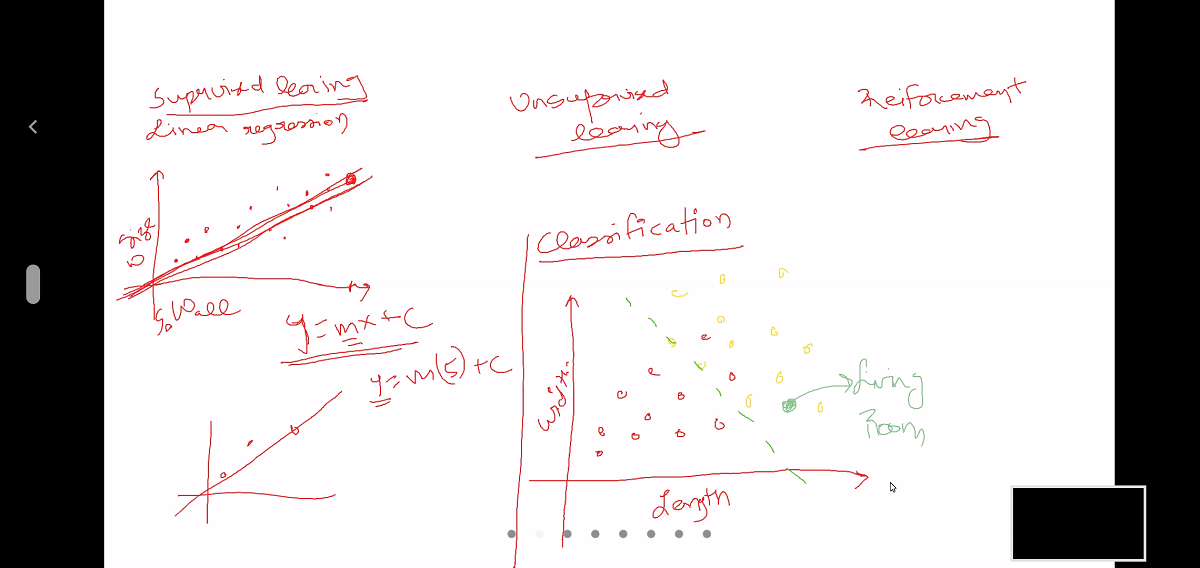 Suprvised learing
Linear regression
Unsupervised
learing
Reiforcement
learing
y=mx+c
y=m(5)+c
Classification
Length
Living
Room